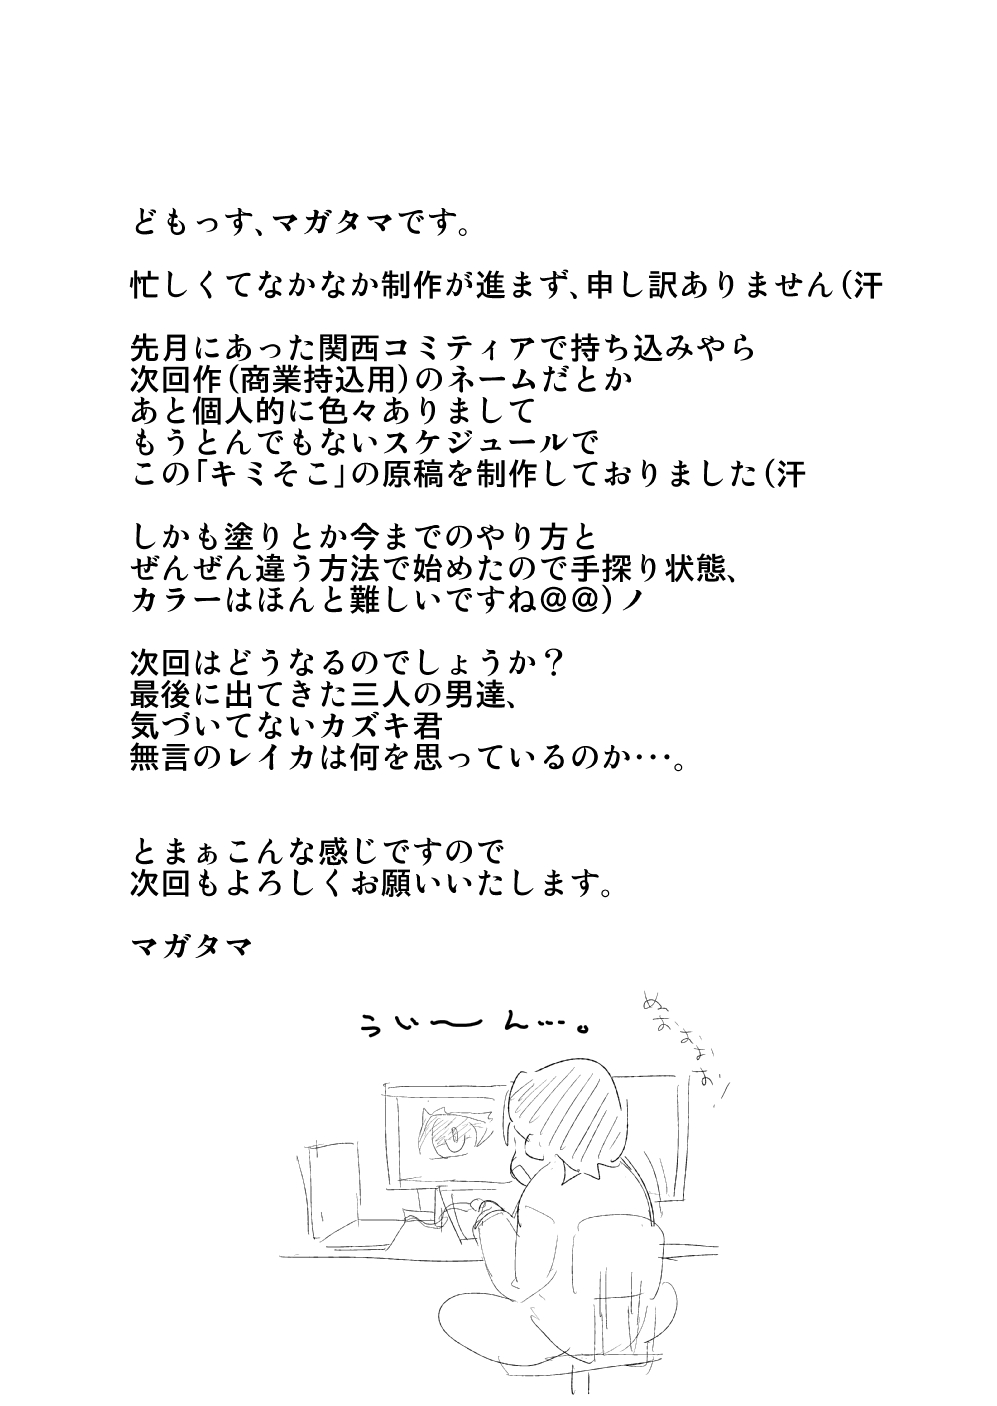 どもっす、マガタマです。
忙しくてなかなか制作が進まず、申し訳ありません(汗
先月にあった関西コミティアで持ち込みやら
次回作(商業持込用)のネームだとか
あと個人的に色々ありまして
もうとんでもないスケジュールで
この「キミそこ」の原稿を制作しておりました(汗
しかも塗りとか今までのやり方と
ぜんぜん違う方法で始めたので手探り状態、
カラーはほんと難しいですね@@)ノ
次回はどうなるのでしょうか？
最後に出てきた三人の男達、
気づいてないカズキ君
無言のレイカは何を思っているのか･･･。
とまぁこんな感じですので
次回もよろしくお願いいたします。
マガタマ
うぃ〜ん…。
ぬぉおおおお!